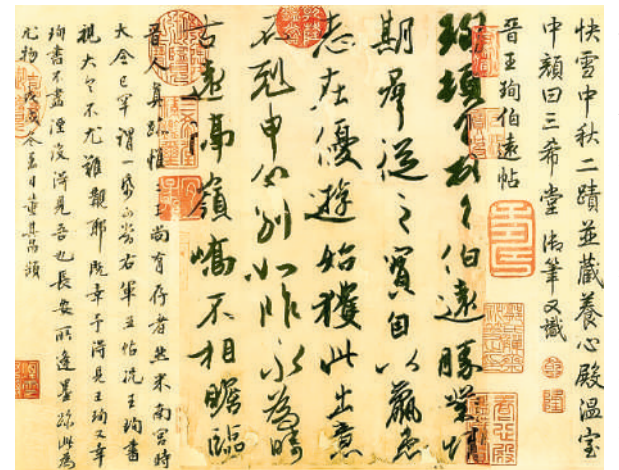 快雪中秋二蹟並藏養心殿溫室
中顏曰三希堂御筆又識
晉王珣伯遠帖
珣頓首頓首伯遠勝業情
期群從之寶自以羸患
志在優遊始獲此出意
不剋申分別如昨永為疇
古遠隔嶺嶠不相瞻臨
晉人真跡惟二王尚有存者然米南宮時
大令已罕謂一紙可當右軍五帖況王珣書
視大令不尤難覯耶既幸予得見王珣又幸
珣書不盡湮沒得見吾也長安所逢墨跡此為
尤物戊戌冬至日董其昌題